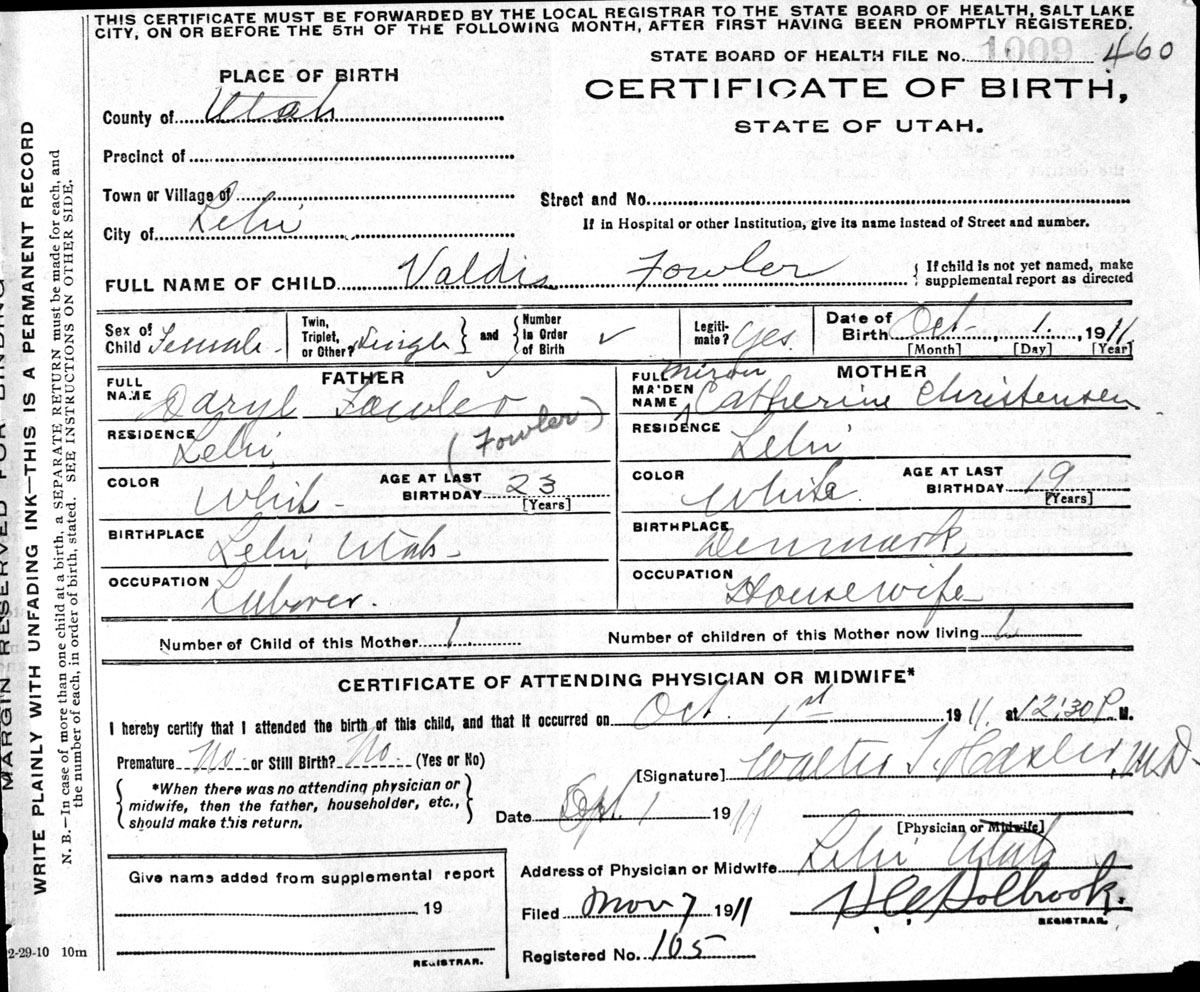 THIS CERTIFICATE MUST BE FORWARDED BY THE LOCAL REGISTRAR TO THE STATE BOARD OF HEALTH, SALT LAKE
CITY, ON OR BEFORE THE 5TH OF THE FOLLOWING MONTH, AFTER FIRST HAVING BEEN PROMPTLY REGISTERED.
STATE BOARD OF HEALTH FILE No. 1009 460
PLACE OF BIRTH
CERTIFICATE OF BIRTH,
STATE OF UTAH.
County of Utah
Precinct of
Town or Village of
Street and No.
City of Lehi
If in Hospital or other Institution, give its name instead of Street and number.
FULL NAME OF CHILD Valdis Fowler
{ If child is not yet named, make
supplemental report as directed
Sex of Child Female
Twin, Triplet, or Other? Single } and { Number in Order of Birth ✓
Legitimate? Yes.
Date of Birth Oct 1, 1911
[Month] [Day] [Year]
FATHER
FULL NAME Daryl Fowler
(Fowler)
RESIDENCE Lehi
COLOR White
AGE AT LAST BIRTHDAY 23
[Years]
BIRTHPLACE Lehi, Utah
OCCUPATION Laborer.
MOTHER
FULL MAIDEN NAME Catherine Christensen
RESIDENCE Lehi
COLOR White.
AGE AT LAST BIRTHDAY 19
[Years]
BIRTHPLACE Denmark
OCCUPATION Housewife
Number of Child of this Mother 1.
Number of children of this Mother now living 1
CERTIFICATE OF ATTENDING PHYSICIAN OR MIDWIFE*
I hereby certify that I attended the birth of this child, and that it occurred on Oct. 1st 1911. at 12:30 P. M.
Premature No or Still Birth? No. (Yes or No)
[Signature] Walter T. Hasler, M.D.
{ *When there was no attending physician or
midwife, then the father, householder, etc.,
should make this return. }
Date 1 1911
[Physician or Midwife]
Address of Physician or Midwife Lehi Utah
Give name added from supplemental report
19
REGISTRAR.
Filed Nov 7 1911
Holbrook.
REGISTRAR.
Registered No. 105
2-29-10 10m
MARGIN RESERVED FOR BINDING
WRITE PLAINLY WITH UNFADING INK—THIS IS A PERMANENT RECORD
N. B.—In case of more than one child at a birth, a SEPARATE RETURN must be made for each, and
the number of each, in order of birth, stated. SEE INSTRUCTIONS ON OTHER SIDE.